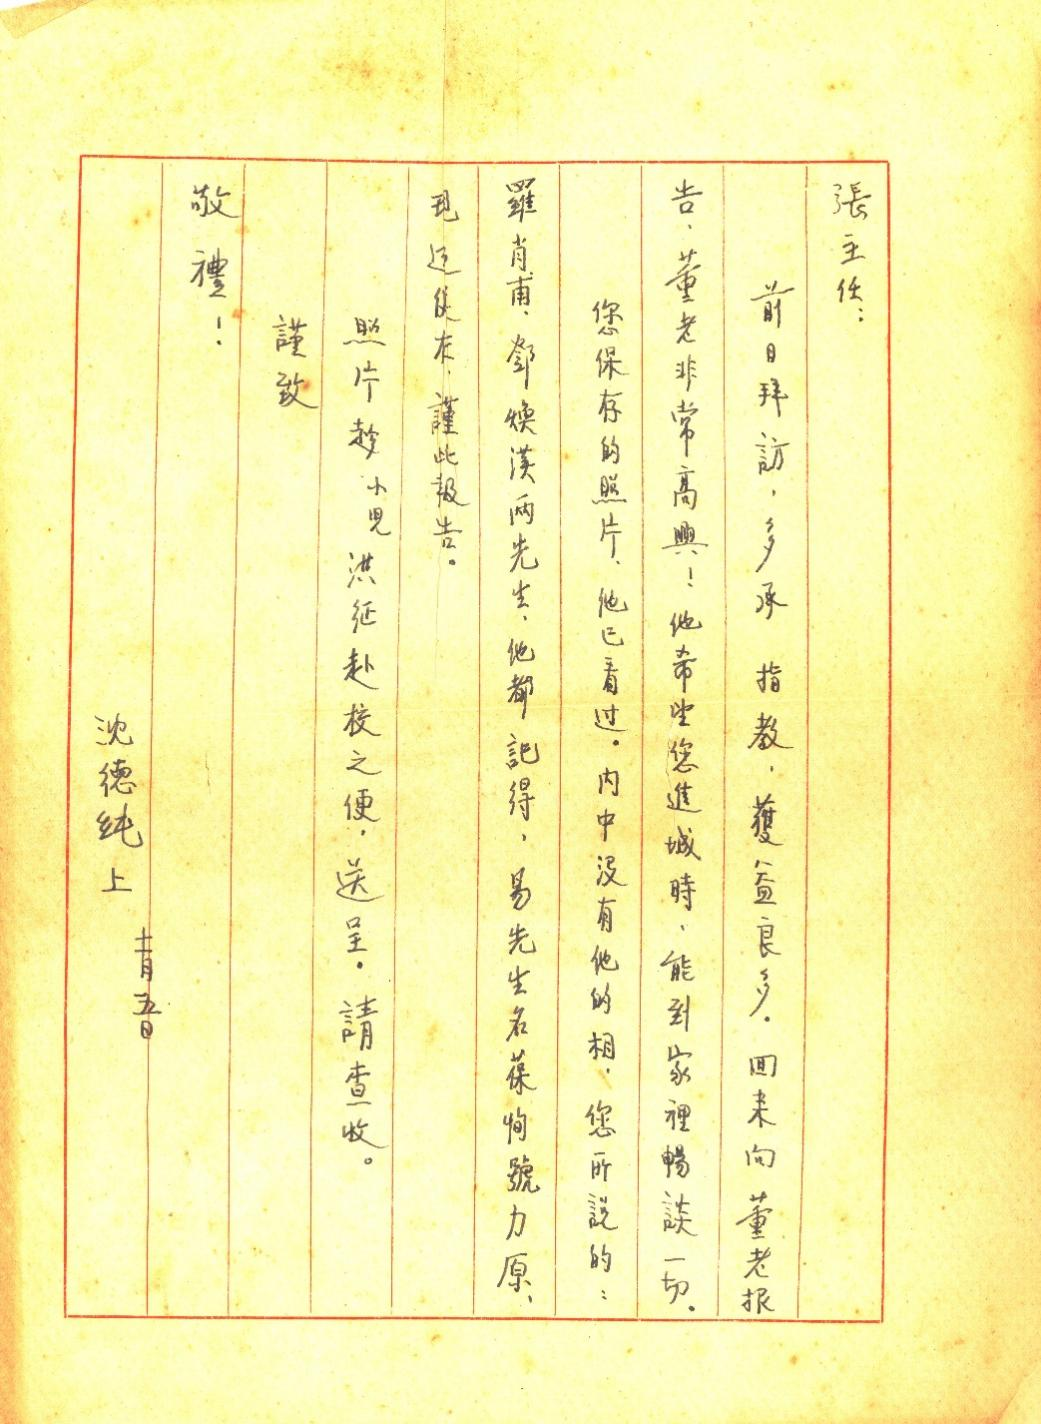 張主任：
前日拜訪，多承 指教，獲益良多。回来向董老报
告，董老非常高興！他希望您進城時，能到家裡暢談一切。
您保存的照片，他已看过。内中没有他的相，您所説的：
羅肖甫、鄧煥漢两先生，他都記得，易先生名葆恂號力原，
現还健在，謹此報告。
照片趁小児洪征赴校之便，送呈。請查收。
謹致
敬禮！
沈德純上
十一月五日